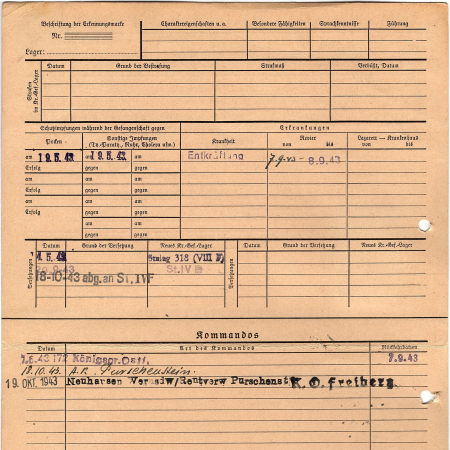 Beschriftung der Erkennungsmarke
Nr.
Lager:
Charaktereigenschaften u. a.
Besondere Fähigkeiten
Sprachkenntnisse
Führung
Strafen im Kr.-Gef.-Lager
Datum
Grund der Bestrafung
Strafmaß
Verbüßt, Datum
Schutzimpfungen während der Gefangenschaft gegen
Erkrankungen
Pocken
Sonstige Impfungen
(Ty.-Paraty., Ruhr, Cholera usw.)
Krankheit
Revier
von bis
Lazarett — Krankenhaus
von bis
am 19.5.43 am 19.5.43. am
Entkräftung
7.9.43 - 8.9.43
Erfolg gegen gegen
am am am
Erfolg gegen gegen
am am am
Erfolg gegen gegen
am am
gegen gegen
am am
gegen gegen
Versetzungen
Datum
Grund der Versetzung
Neues Kr.-Gef.-Lager
Datum
Grund der Versetzung
Neues Kr.-Gef.-Lager
5.43. Stalag 318 (VIII F)
9.43 St.IV B
18-10-43 abg.an St.IVF
Kommandos
Datum
Art des Kommandos
Rückkehrdatum
43 172 7.9.43
18.10.43. A.K. Purschenstein.
19. OKT. 1943 Neuhausen Rentverw Purschenst K.O. Freiberg.